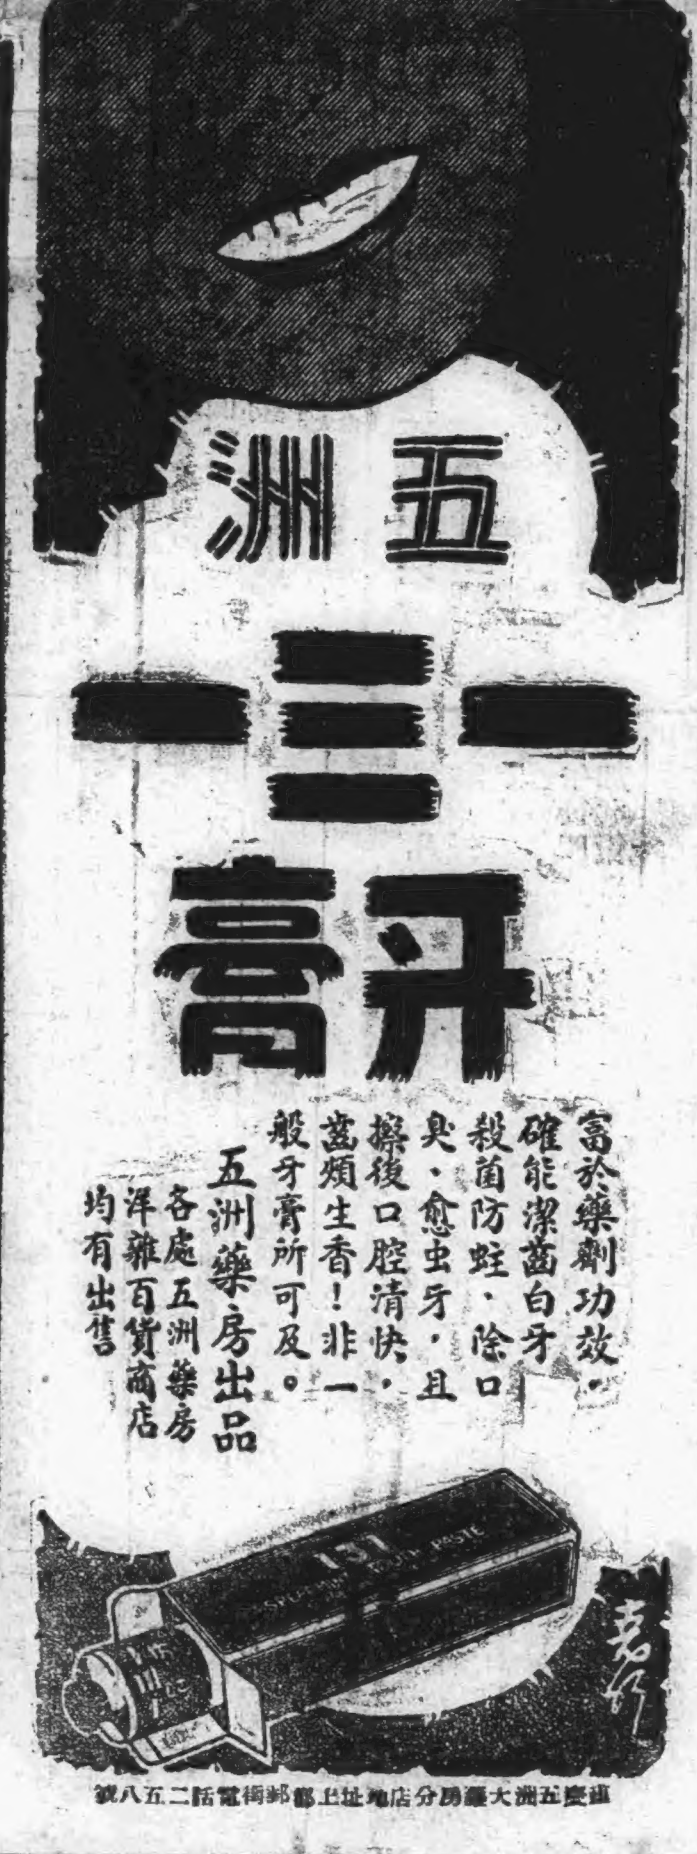 五洲
一三一
牙膏
富於藥劑功效，
確能潔齒白牙
殺菌防蛀、除口
臭、愈虫牙，且
擦後口腔清快，
齒頰生香！非一
般牙膏所可及。
五洲藥房出品
各處五洲藥房
洋雜百貨商店
均有出售
131
TOOTH PASTE
五洲大藥房分店地址上都郵街電話二五八號